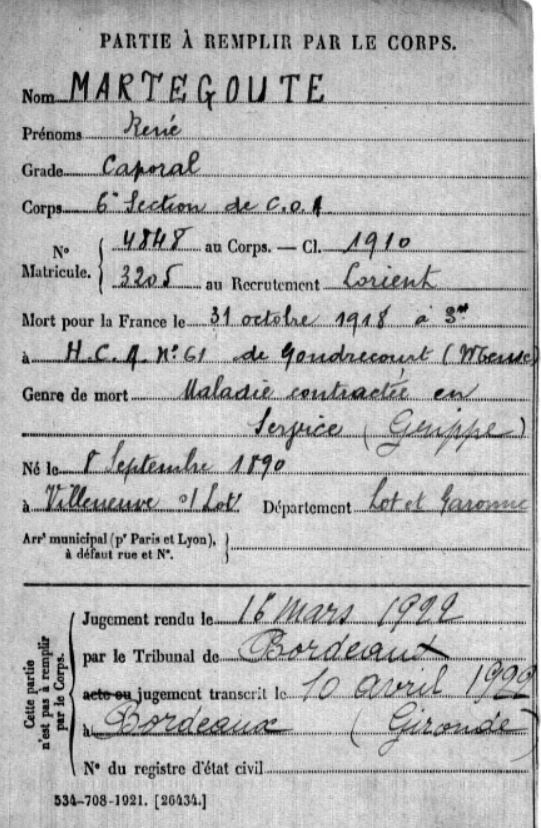 PARTIE À REMPLIR PAR LE CORPS.
Nom MARTEGOUTE
Prénoms René
Grade Caporal
Corps 6e Section de C.O.A
N° Matricule. { 4848 au Corps. — Cl. 1910
3205 au Recrutement Lorient
Mort pour la France le 31 octobre 1918 à 3h
à H.C.A. n° 61 de Gondrecourt (Meuse)
Genre de mort Maladie contractée en
Service (Grippe)
Né le 8 Septembre 1890
à Villeneuve s/Lot Département Lot et Garonne
Arrt municipal (pr Paris et Lyon), à défaut rue et N°. }
Cette partie n'est pas à remplir par le Corps. {
Jugement rendu le 16 Mars 1922
par le Tribunal de Bordeaux
acte ou jugement transcrit le 10 avril 1922
à Bordeaux (Gironde)
N° du registre d'état civil
534-708-1921. [26434.]